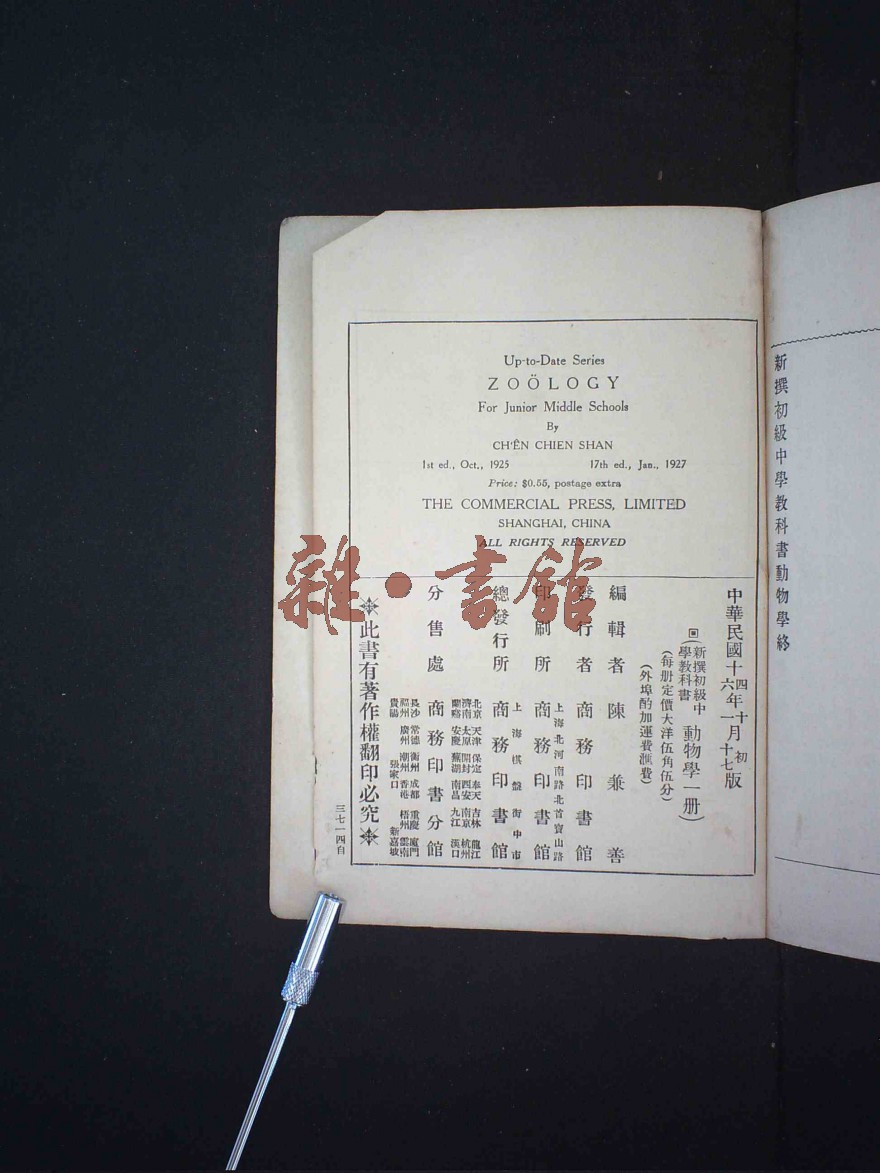 Up-to-Date Series
ZOÖLOGY
For Junior Middle Schools
By
CH'ÊN CHIEN SHAN
1st ed., Oct., 1925 17th ed., Jan., 1927
Price: $0.55, postage extra
THE COMMERCIAL PRESS, LIMITED
SHANGHAI, CHINA
ALL RIGHTS RESERVED
雜·書館
新撰初級中學教科書動物學終
中華民國十四年十月初版
十六年一月十七版
新撰初級中學教科書 動物學一册
(每册定價大洋伍角伍分)
(外埠酌加運費滙費)
編輯者 陳兼善
發行者 商務印書館
上海北河南路北首寶山路
印刷所 商務印書館
上海棋盤街中市
總發行所 商務印書館
北京 天津 保定 奉天 吉林 龍江
濟南 太原 開封 西安 南京 杭州
蘭谿 安慶 蕪湖 南昌 九江 漢口
分售處 商務印書分館
長沙 常德 衡州 成都 重慶 廈門
福州 廣州 潮州 香港 梧州 雲南
貴陽 張家口 新嘉坡
此書有著作權翻印必究
三七一四自